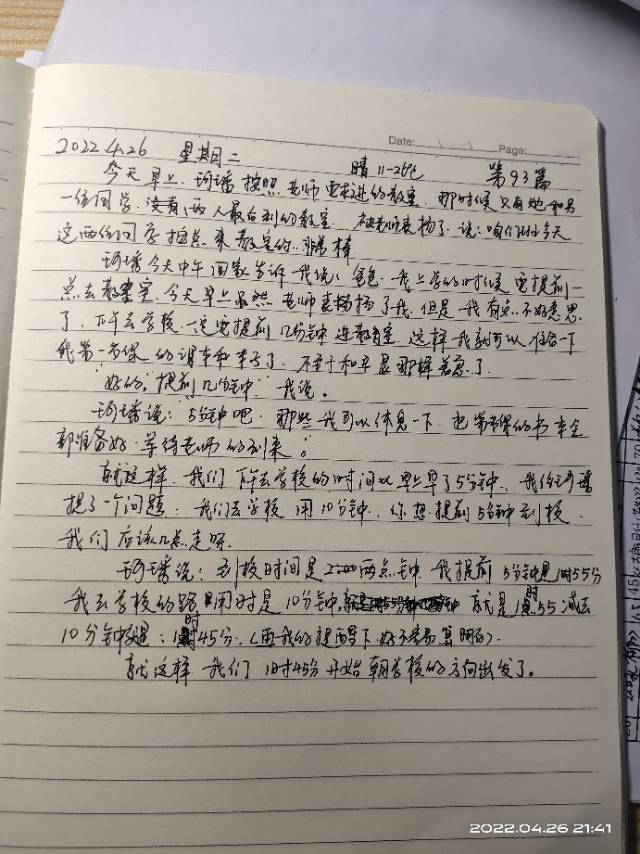 Date: Page:
2022.4.26 星期二 晴 11-26℃ 第93篇
今天早上,珂璠按照老师要求进的教室,那时候只有她和另
一位同学,没有,两人最早到的教室,被老师表扬了,说:咱们班今天
这两位同学掐点来教室的,非常棒
珂璠今天中午回家告诉我说:爸爸,我上学的时候要提前一
点去教室,今天早上虽然老师表扬了我,但是我有点不好意思
了,下午去学校一定要提前几分钟进教室,这样我就可以准备一下
我第一节课的课本和本子了,不至于和早晨那样着急了.
"好的,提前几分钟"我说.
珂璠说:5分钟吧,那些我可以休息一下,也第一节课的书本全
部准备好,等待老师的到来。
就这样,我们下午去学校的时间比早上早了5分钟,我给珂璠
提了一个问题:我们去学校用10分钟,你想提前5分钟到校,
我们应该几点走呀.
珂璠说:到校时间是2:00两点钟,我提前5分钟是1时55分
我去学校的路用时是10分钟,就是1时55减去
10分钟就是:1时45分.(再我的提醒下,好不容易算明白)
就这样 我们1时45分开始朝学校的方向出发了。
2022.04.26 21:41